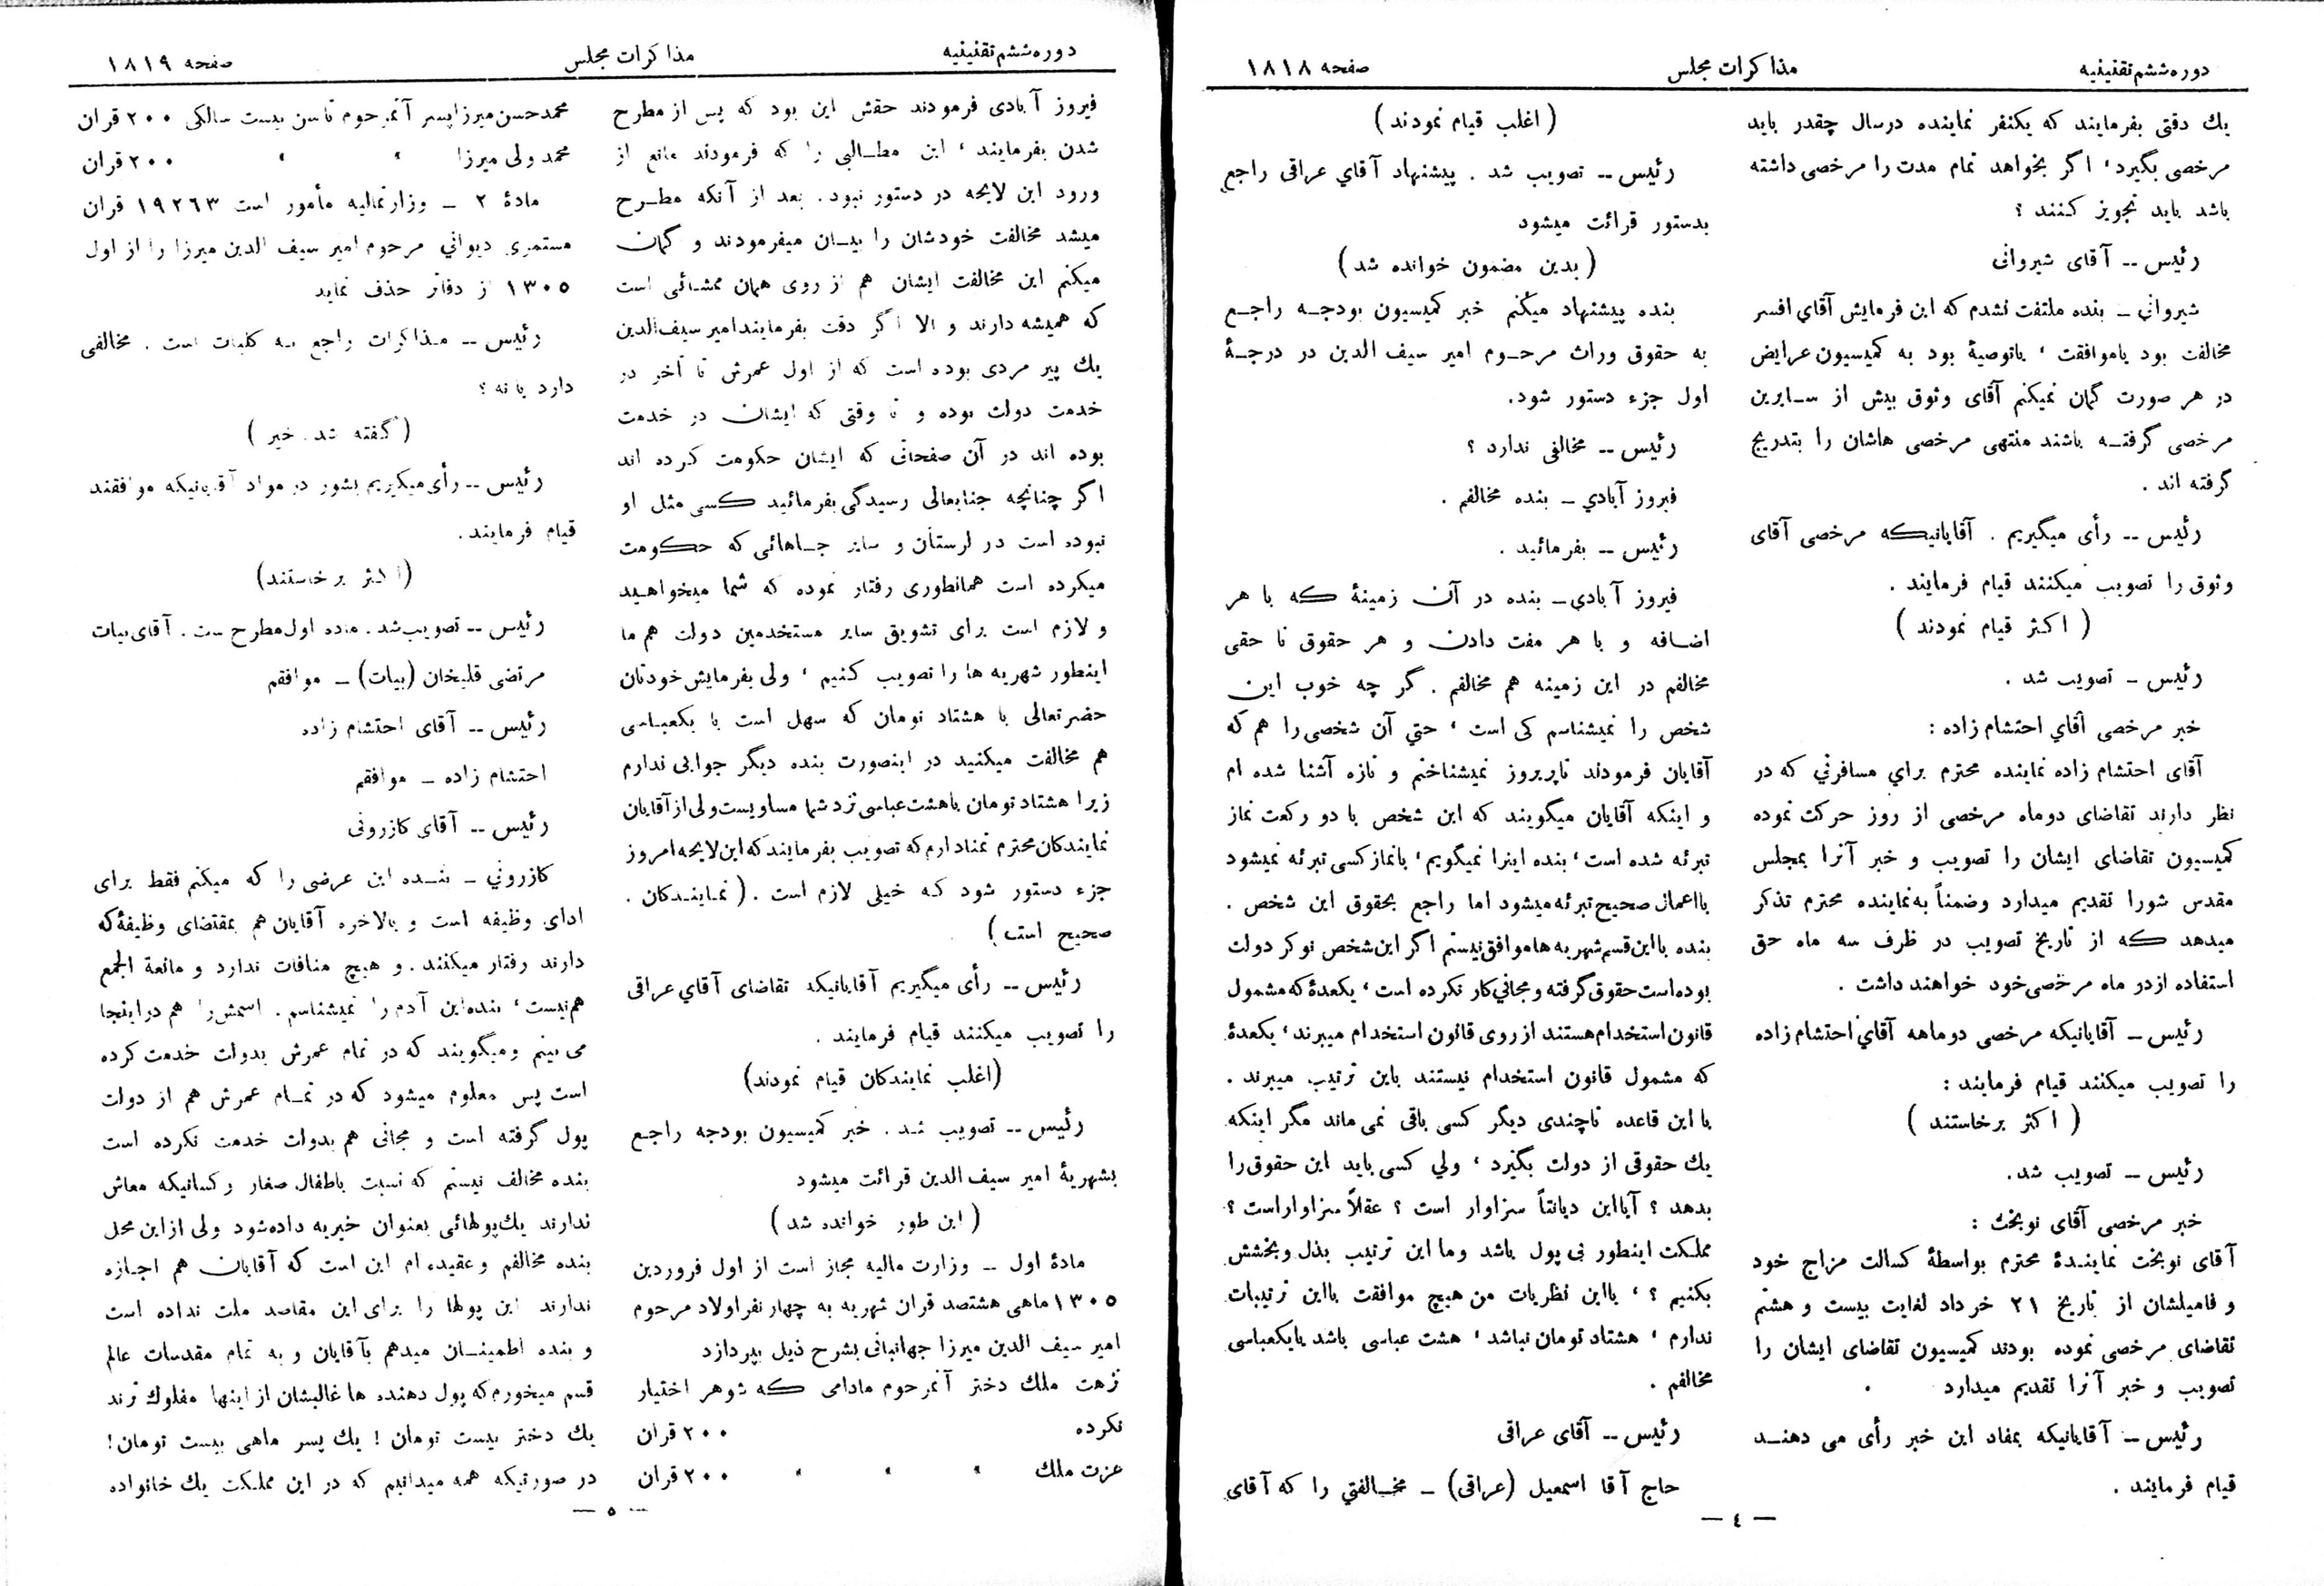 دوره ششم تقنینیه
مذاکرات مجلس
صفحه ۱۸۱۸
یك دقتی بفرمایند که یکنفر نماینده درسال چقدر باید
مرخصی بگیرد، اگر بخواهد تمام مدت را مرخصی داشته
باشد باید تجویز کنند ؟
رئیس -- آقای شیروانی
شیروانی ـ بنده ملتفت نشدم که این فرمایش آقای افسر
مخالفت بود یاموافقت ، یاتوصیهٔ بود به کمیسیون عرایض
در هر صورت گمان نمیکنم آقای وثوق بیش از سـایرین
مرخصی گرفتـه باشند منتهی مرخصی هاشان را بتدریج
گرفته اند .
رئیس -- رأی میگیریم . آقایانیکه مرخصی آقای
وثوق را تصویب میکنند قیام فرمایند .
( اکثر قیام نمودند )
رئیس ـ تصویب شد .
خبر مرخصی آقای احتشام زاده :
آقای احتشام زاده نماینده محترم برای مسافرتی که در
نظر دارند تقاضای دوماه مرخصی از روز حرکت نموده
کمیسیون تقاضای ایشان را تصویب و خبر آنرا بمجلس
مقدس شورا تقدیم میدارد وضمناً به نماینده محترم تذکر
میدهد که از تاریخ تصویب در ظرف سه ماه حق
استفاده ازدر ماه مرخصی خود خواهند داشت .
رئیس ـ آقایانیکه مرخصی دوماهه آقای احتشام زاده
را تصویب میکنند قیام فرمایند :
( اکثر برخاستند )
رئیس ـ تصویب شد.
خبر مرخصی آقای نوبخت :
آقای نوبخت نمایندهٔ محترم بواسطهٔ کسالت مزاج خود
و فامیلشان از تاریخ ۲۱ خرداد لغایت بیست و هشتم
تقاضای مرخصی نموده بودند کمیسیون تقاضای ایشان را
تصویب و خبر آنرا تقدیم میدارد .
رئیس ـ آقایانیکه بمفاد این خبر رأی می دهنـد
قیام فرمایند .
( اغلب قیام نمودند )
رئیس -- تصویب شد . پیشنهاد آقای عراقی راجع
بدستور قرائت میشود
( بدین مضمون خوانده شد )
بنده پیشنهاد میکنم خبر کمیسیون بودجـه راجـع
به حقوق وراث مرحـوم امیر سیف الدین در درجـهٔ
اول جزء دستور شود.
رئیس -- مخالفی ندارد ؟
فیروز آبادی ـ بنده مخالفم .
رئیس -- بفرمائید .
فیروز آبادی ـ بنده در آن زمینهٔ که با هر
اضـافه و با هر مفت دادن و هر حقوق نا حقی
مخالفم در این زمینه هم مخالفم . گر چه خوب این
شخص را نمیشناسم کی است ، حتي آن شخصی را هم که
آقایان فرمودند تاپریروز نمیشناختم و تازه آشنا شده ام
و اینکه آقایان میگویند که این شخص با دو رکعت نماز
تبرئه شده است، بنده اینرا نمیگویم، بانماز کسی تبرئه نمیشود
بااعمال صحیح تبرئه میشود اما راجع بحقوق این شخص .
بنده بااین قسم شهریه ها موافق نیستم اگر این شخص نوکر دولت
بوده است حقوق گرفته و مجانی کار نکرده است ، یکعدهٔ که مشمول
قانون استخدام هستند از روی قانون استخدام میبرند ، یکعدهٔ
که مشمول قانون استخدام نیستند باین ترتیب میبرند .
با این قاعده تاچندی دیگر کسی باقی نمی ماند مگر اینکه
یك حقوقی از دولت بگیرد ، ولي کسی باید این حقوق را
بدهد ؟ آیااین دیانتاً سزاوار است ؟ عقلاً سزاوار است ؟
مملکت اینطور بی پول باشد وما این ترتیب بذل و بخشش
بکنیم ؟ ، بااین نظریات من هیچ موافقت بااین ترتیبات
ندارم ، هشتاد تومان نباشد ، هشت عباسی باشد یایکعباسی
مخالفم .
رئیس -- آقای عراقی
حاج آقا اسمعیل (عراقی) ـ مخـالفتي را که آقای
— ٤ —
دوره ششم تقنینیه
مذاکرات مجلس
صفحه ۱۸۱۹
فیروز آبادی فرمودند حقش این بود که پس از مطرح
شدن بفرمایند ، این مطـالبی را که فرمودند مانع از
ورود این لایحه در دستور نبود. بعد از آنکه مطـرح
میشد مخالفت خودشان را بیـان میفرمودند و گمان
میکنم این مخالفت ایشان هم از روی همان ممشائی است
که همیشه دارند و الا اگر دقت بفرمایند امیر سیف الدین
یك پیر مردی بوده است که از اول عمرش تا آخر در
خدمت دولت بوده و تا وقتی که ایشان در خدمت
بوده اند در آن صفحاتی که ایشان حکومت کرده اند
اگر چنانچه جنابعالی رسیدگی بفرمائید کسی مثل او
نبوده است در لرستان و سایر جـاهائی که حکومت
میکرده است همانطوری رفتار نموده که شما میخواهید
و لازم است برای تشویق سایر مستخدمین دولت هم ما
اینطور شهریه ها را تصویب کنیم ، ولی بفرمایش خودتان
حضرتعالی با هشتاد تومان که سهل است با یکعباسی
هم مخالفت میکنید در اینصورت بنده دیگر جوابی ندارم
زیرا هشتاد تومان باهشت عباسی نزد شما مساویست ولی از آقایان
نمایندگان محترم تمنا دارم که تصویب بفرمایند که این لایحه امروز
جزء دستور شود که خیلی لازم است . (نمایندگان .
صحیح است )
رئیس -- رأی میگیریم آقایانیکه تقاضای آقای عراقی
را تصویب میکنند قیام فرمایند .
(اغلب نمایندگان قیام نمودند)
رئیس -- تصویب شد . خبر کمیسیون بودجه راجع
بشهریهٔ امیر سیف الدین قرائت میشود
( این طور خوانده شد )
مادهٔ اول -- وزارت مالیه مجاز است از اول فروردین
۱۳۰۵ ماهی هشتصد قران شهریه به چهار نفر اولاد مرحوم
امیر سیف الدین میرزا جهانبانی بشرح ذیل بپردازد
نزهت ملك دختر آنمرحوم مادامی که شوهر اختیار
نکرده ۲۰۰ قران
عزت ملك ، ، ، ۲۰۰ قران
محمد حسن میرزا پسر آنمرحوم تا سن بیست سالگی ۲۰۰ قران
محمد ولی میرزا ، ، ۲۰۰ قران
مادهٔ ۲ ـ وزارتمالیه مأمور است ۱۹۲۶۳ قران
مستمری دیوانی مرحوم امیر سیف الدین میرزا را از اول
۱۳۰۵ از دفاتر حذف نماید
رئیس -- مذاکرات راجع به کلیات است . مخالفی
دارد یا نه ؟
( گفته شد. خیر )
رئیس -- رأی میگیریم بشور در مواد آقایانیکه موافقند
قیام فرمایند .
(اکثر برخاستند)
رئیس -- تصویب شد . ماده اول مطرح است . آقای بیات
مرتضی قلیخان (بیات) ـ موافقم
رئیس -- آقای احتشام زاده
احتشام زاده ـ موافقم
رئیس -- آقای کازرونی
کازرونی ـ بنـده این عرضی را که میکنم فقط برای
ادای وظیفه است و بالاخره آقایان هم بمقتضای وظیفهٔ که
دارند رفتار میکنند . و هیچ منافات ندارد و مانعة الجمع
هم نیست ، بنده این آدم را نمیشناسم . اسمش را هم در اینجا
می بینم و میگویند که در تمام عمرش بدولت خدمت کرده
است پس معلوم میشود که در تمـام عمرش هم از دولت
پول گرفته است و مجانی هم بدولت خدمت نکرده است
بنده مخالف نیستم که نسبت باطفال صغار و کسانیکه معاش
ندارند یك پولهائی بعنوان خیریه داده شود ولی از این محل
بنده مخالفم و عقیده ام این است که آقایان هم اجـازه
ندارند این پولها را برای این مقاصد ملت نداده است
و بنده اطمینـان میدهم بآقایان و به تمام مقدسات عالم
قسم میخورم که پول دهنده ها غالبشان از اینها مفلوك ترند
یك دختر بیست تومان ! یك پسر ماهی بیست تومان !
در صورتیکه همه میدانیم که در این مملکت یك خانواده
— ٥ —